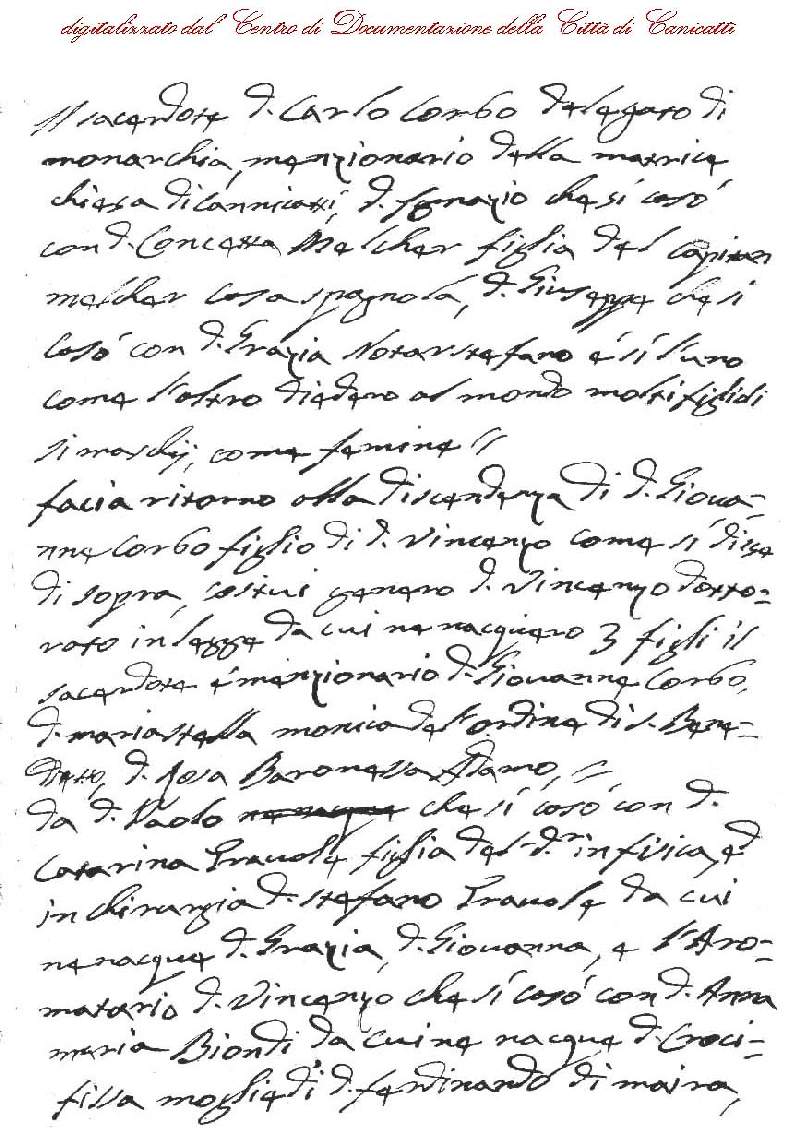 digitalizzato dal Centro di Documentazione della Città di Canicattì
Il sacerdote d. Carlo Corbo delegato di
monarchia, menzionario della matrice
chiesa di Cannicatti, d. Ignazio che si casò
con d. Concetta Melcher figlia del capitan
melcher casa spagnola, d. Giuseppe che si
casò con d. Grazia Notarstefano é si l'uno
come l'altro diedero al mondo molti figli di
si maschij, come femine //
facia ritorno alla discendenza di d. Giova=
nne Corbo figlio di d. Vincenzo come si disse
di sopra, costui genero d. Vincenzo dotto=
rato in legge da cui ne nacquero 3 figli il
sacerdote é menzionario d. Giovanne Corbo,
d. maria stella monica dell'ordine di s. Bene=
ditto, d. Rosa Baronessa Adamo, //
da d. Paolo ne nacque che si casò con d.
Catarina Travole figlia del d.r in fisica, e
in chirurgia d. stefano Travole da cui
ne nacque d. Grazia, d. Giovanna, e l'Aro=
matario d. Vincenzo che si casò con d. Anna
maria Biondi da cui ne nacque d. Croci=
fissa moglie di d. ferdinando di maira,